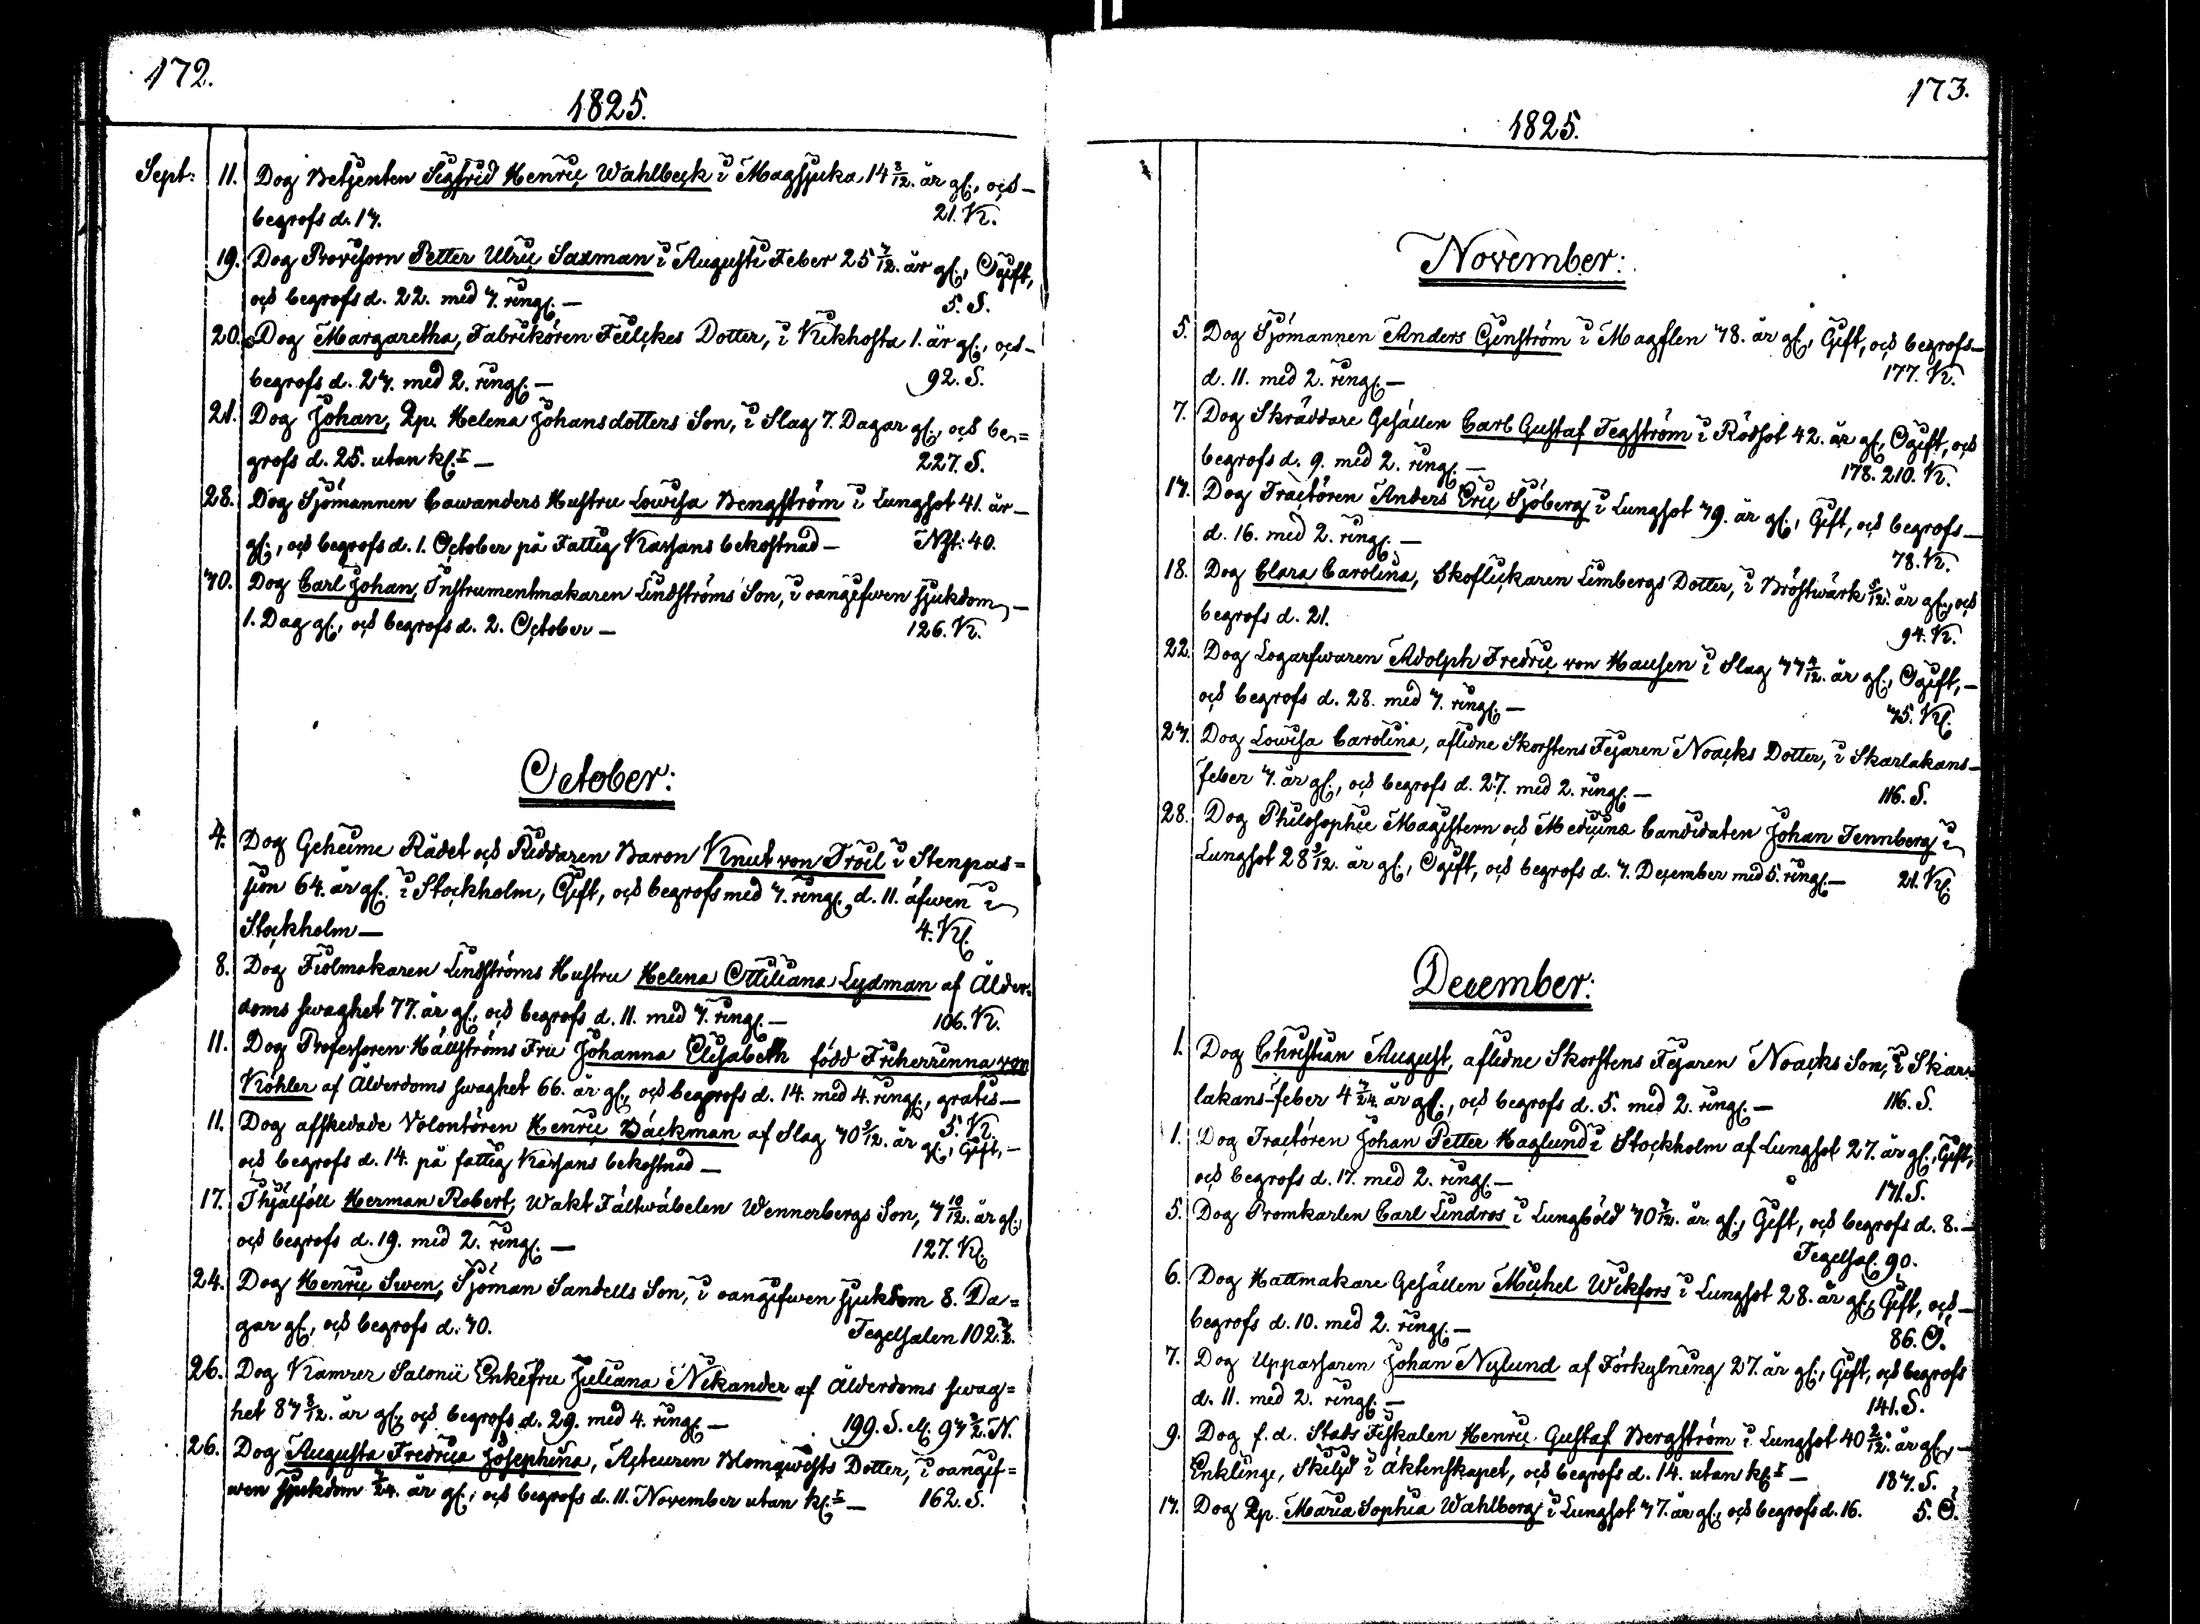 172.
1825.
Sept: 11. Dog Betjenten Sigfrid Henric Wahlbeck i Magsjuka 14 3/12. år gl., och
begrofs d. 13. 21. K.
19. Dog Provisorn Petter Ulric Saxman i Augusti Feber 25 7/12. år gl., Ogift,
och begrofs d. 22. med 3. ringg. 5. S.
20. Dog Margaretha, Fabrikören Dotter, i Kikhosta 1. år gl., och
begrofs d. 23. med 2. ringg. 92. S.
21. Dog Johan, Qp. Helena Johansdotters Son, i Slag 7. Dagar gl., och be=
grofs d. 25. utan kl. 227. S.
28. Dog Sjömannen Cawanders Hustru Lowisa Bengström i Lungsot 41. år
gl., och begrofs d. 1. October på Fattig Kassans bekostnad Nyst: 40.
30. Dog Carl Johan, Instrumentmakaren Lindströms Son, i oangifwen sjukdom
1. Dag gl., och begrofs d. 2. October 126. K.
October:
4. Dog Geheime Rådet och Riddaren Baron Knut von Troil i Stenpas=
sion 64. år gl. i Stockholm, Gift, och begrofs med 3. ringg. d. 11. äfwen i
Stockholm 4. Kl.
8. Dog Fiolmakaren Lindströms Hustru Helena Ottiliana Lydman af Ålder=
doms swaghet 77. år gl., och begrofs d. 11. med 3. ringg. 106. K.
11. Dog Professoren Hällströms Fru Johanna Elisabeth född Friherrinna von
Köhler af Ålderdoms swaghet 66. år gl., och begrofs d. 14. med 4. ringg., gratis
5. K.
11. Dog afskedade Volontören Henric Bäckman af Slag 30 9/12. år gl., Gift,
och begrofs d. 14. på fattig Kassans bekostnad
17. Ihjälföll Herman Robert, Wakt Fältwäbelen Wennerbergs Son, 3 10/12. år gl.,
och begrofs d. 19. med 2. ringg. 127. Kl.
24. Dog Henric Swen, Sjöman Sandells Son, i oangifwen sjukdom 8. Da=
gar gl., och begrofs d. 30. Tegelsalen 102.
26. Dog Kamrer Salonii Enkefru Juliana Nikander af Ålderdoms swag=
het 83 8/12. år gl., och begrofs d. 29. med 4. ringg. 199. S.
26. Dog Augusta Fredrica Josephina, Acteuren Blomqwists Dotter, i oangif=
wen sjukdom år gl., och begrofs d. 11. November utan kl. 162. S.
173.
1825.
November:
5. Dog Sjömannen Anders Genström i Magflen 38. år gl., Gift, och begrofs
d. 11. med 2. ringg. 177. K.
7. Dog Skräddare Gesällen Carl Gustaf Tegström i Rödsot 42. år gl., Ogift, och
begrofs d. 9. med 2. ringg. 178. 210. K.
13. Dog Tractören Anders Eric Sjöberg i Lungsot 39. år gl., Gift, och begrofs
d. 16. med 2. ringg. 78. K.
18. Dog Clara Carolina, Skoflickaren Limbergs Dotter, i Bröstwärk 5/12. år gl., och
begrofs d. 21. 94. K.
22. Dog Logarfwaren Adolph Fredric von Hausen i Slag 33 4/12. år gl., Ogift,
och begrofs d. 28. med 3. ringg. 35. Kl.
23. Dog Lowisa Carolina, aflidne Skorstens Fejaren Noacks Dotter, i Skarlakans-
feber 3. år gl., och begrofs d. 27. med 2. ringg. 116. S.
28. Dog Philosophie Magistern och Medicine Candidaten Johan Tennberg i
Lungsot 28 9/12. år gl., Ogift, och begrofs d. 3. December med 5. ringg. 21. Kl.
December:
1. Dog Christian August, aflidne Skorstens Fejaren Noacks Son, i Skar=
lakans-feber 4 7/24. år gl., och begrofs d. 5. med 2. ringg. 116. S.
1. Dog Tractören Johan Petter Haglund i Stockholm af Lungsot 27. år gl., Gift,
och begrofs d. 13. med 2. ringg. 171. S.
5. Dog Promkarlen Carl Lindros i Lungböld 30 7/12. år gl., Gift, och begrofs d. 8.
Tegelsal. 90.
6. Dog Hattmakare Gesällen Michel Wikfors i Lungsot 28. år gl., Gift, och
begrofs d. 10. med 2. ringg. 86. O.
7. Dog Uppassaren Johan Nylund af Förkylning 27. år gl., Gift, och begrofs
d. 11. med 2. ringg. 141. S.
9. Dog f.d. Stads Fiskalen Henric Gustaf Bergström i Lungsot 40 2/12. år gl.,
Enkling, Skild i äktenskapet, och begrofs d. 14. utan kl. 183. S.
13. Dog Qp. Maria Sophia Wahlberg i Lungsot 37. år gl., och begrofs d. 16. 5. O.